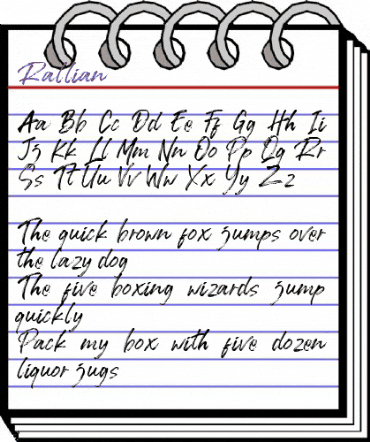 Rallian
Aa Bb Cc Dd Ee Ff Gg Hh Ii
Jj Kk Ll Mm Nn Oo Pp Qq Rr
Ss Tt Uu Vv Ww Xx Yy Zz
The quick brown fox jumps over
the lazy dog
The five boxing wizards jump
quickly
Pack my box with five dozen
liquor jugs